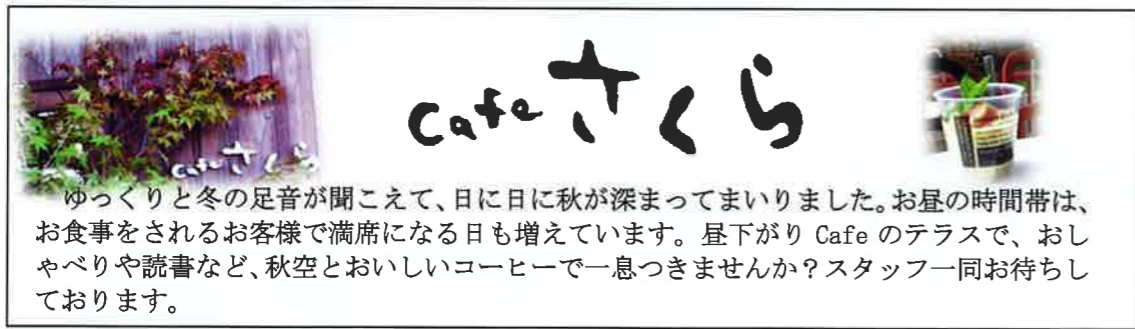 Cafe さくら
cafe さくら
ゆっくりと冬の足音が聞こえて、日に日に秋が深まってまいりました。お昼の時間帯は、
お食事をされるお客様で満席になる日も増えています。昼下がり Cafe のテラスで、おし
ゃべりや読書など、秋空とおいしいコーヒーで一息つきませんか？スタッフ一同お待ちし
ております。